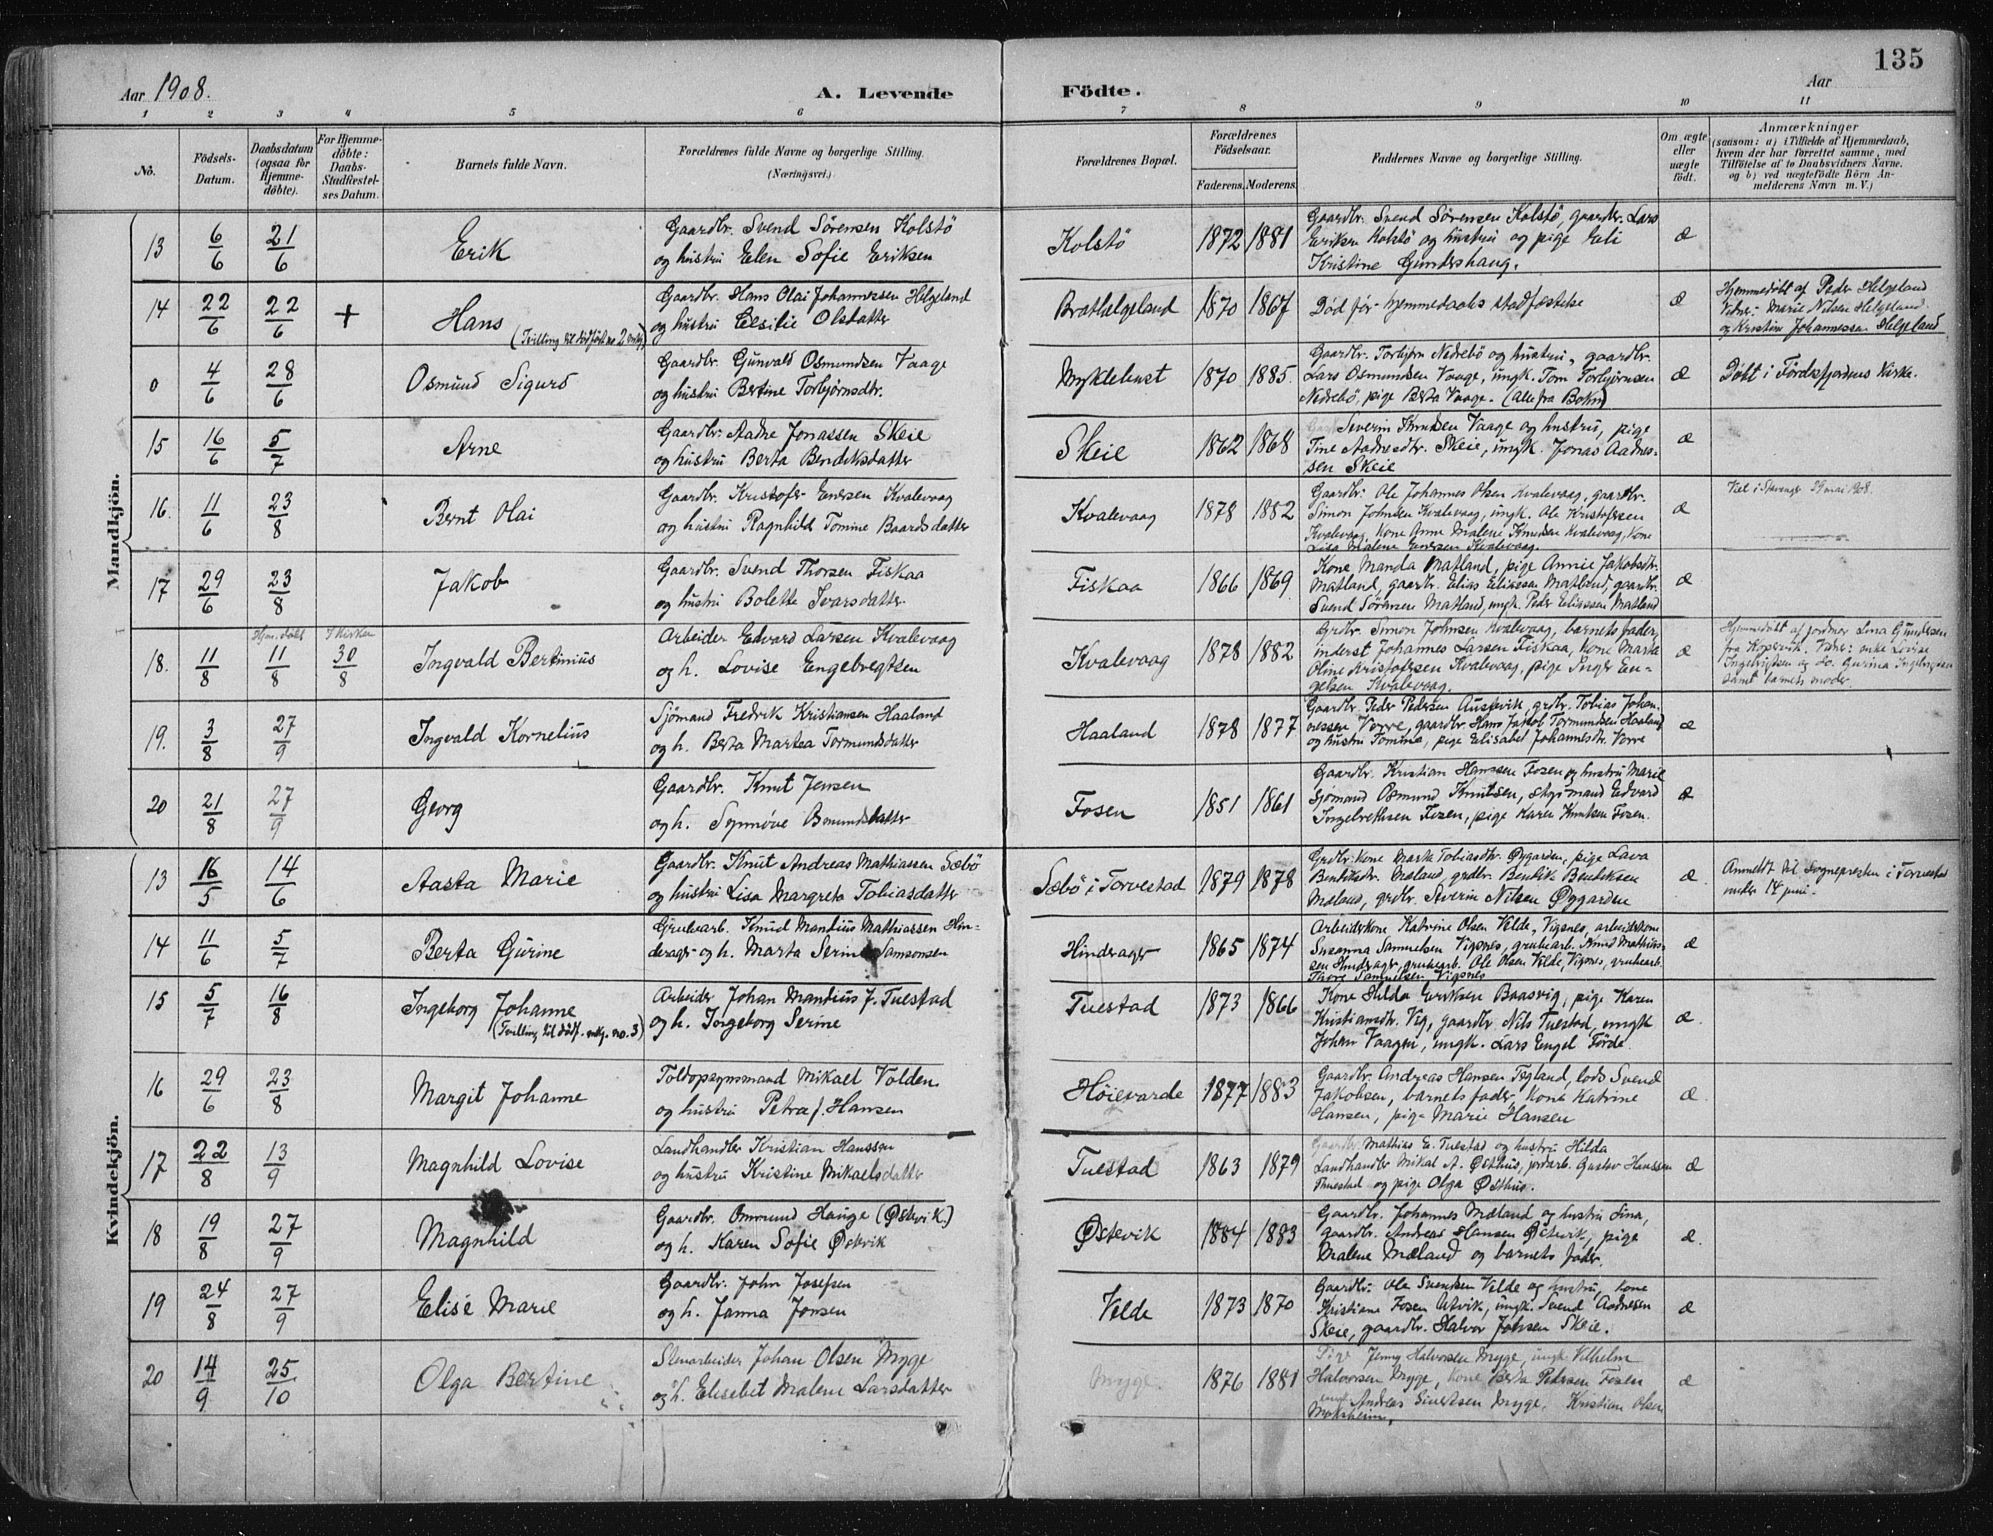 135
Aar 1908.
A. Levende Födte.
Aar
1 2 3 4 5 6 7 8 9 10 11
No.
Födsels-Datum.
Daabsdatum (ogsaa for Hjemme-döbte).
For Hjemme-döbte: Daabs-Stadfæstel-ses Datum.
Barnets fulde Navn.
Forældrenes fulde Navne og borgerlige Stilling. (Næringsvei.)
Forældrenes Bopæl.
Forældrenes Födselsaar.
Faderens. Moderens.
Faddernes Navne og borgerlige Stilling.
Om ægte eller uægte födt.
Anmærkninger
(saasom: a) i Tilfælde af Hjemmedaab,
hvem der har forrettet samme, med
Tilföielse af to Daabsvidners Navne.
og b) ved uægtefödte Börn An-
melderens Navn m. V.)
Mandkjön.
13 6/6 21/6 Erik
Gaardbr. Svend Sörensen Kolstö
og hustru Elen Sofie Eriksen
Kolstö 1872 1881
Gaardbr. Svend Sörensen Kolstö, gaardbr. Lars
Eriksen Kolstö og hustru og pige Eli
Kristine Gundershaug.
æ
14 22/6 22/6 + Hans
(Tvilling til dödfödt no 2 mkj)
Gaardbr. Hans Olai Johannessen Helgeland
og hustru Elsilie Olsdatter
Brathelgeland 1870 1867
Död för hjemmedaabs stadfæstelse
æ
Hjemmedöbt af Peder Helgeland
Vidner: Marie Nilsen Helgeland
og Kristine Johannessen Helgeland
0 4/6 28/6 Osmund Sigurd
Gaardbr. Gunvald Osmundsen Vaage
og hustru Bertine Torbjörnsdtr.
Myklebust 1870 1885.
Gaardbr. Torbjörn Nedrebö og hustru, gaardbr.
Lars Osmundsen Vaage, ungk. Tom Torbjörnsen
Nedrebö, pige Berta Vaage. (Alle fra Bokn)
æ
Döbt i Fördesfjordens Kirke.
15 16/6 5/7 Arne
Gaardbr. Aadne Jonassen Skeie
og hustru Berta Bendiksdatter
Skeie 1862 1868
Severin Knutsen Vaage og hustru, pige
Tine Aadnesdtr. Skeie, ungk. Jonas Aadnes-
sen Skeie
æ
16. 11/6 23/8 Bernt Olai
Gaardbr. Kristofer Enersen Kvalevaag
og hustru Ragnhild Tomine Baardsdatter
Kvalevaag 1878 1882
Gaardbr. Ole Johannes Olsen Kvalevaag, gaardbr.
Simon Johnsen Kvalevaag, ungk. Ole Kristofersen
Kvalevaag, Kone Anne Malene Knudsen Kvalevaag, Kone
Lisa Malene Enersen Kvalevaag.
æ
Viet i Stavanger 29 mai 1908.
17 29/6 23/8 Jakob
Gaardbr. Svend Thorsen Fiskaa
og hustru Bolette Ivarsdatter
Fiskaa 1866 1869
Kone Manda Matland, pige Annie Jakobsdtr.
Matland, gaardbr. Elias Eliassen Matland, gaardbr.
Svend Sörensen Matland, ungk. Peder Eliassen Matland
æ
18. 11/8 Hjem. döbt 11/8 I kirken 30/8 Ingvald Bertinius
Arbeider Edvard Larsen Kvalevaag
og h. Lovise Engebregtsen
Kvalevaag 1878 1882
Grdbr. Simon Johnsen Kvalevaag, barnets fader,
inderst Johannes Larsen Fiskaa, kone Marta
Oline Kristofersen Kvalevaag, pige Inger En-
gelsen Kvalevaag.
æ
Hjemmedöbt af jordmor Lina Gundersen
fra Kopervik. Vidner: enke Lovise
Ingebrigtsen og Gurina Ingebrigtsen
samt barnets moder.
19. 3/8 27/9 Ingvald Kornelius
Sjömand Fredrik Kristiansen Haaland
og h. Berta Martea Tormundsdatter
Haaland 1878 1877
Gaardbr. Peder Pedersen Austevik, grdbr. Tobias Johan-
nessen Vorre, gaardbr. Hans Jakob Tormundsen Haaland
og hustru Tomine, pige Elisabet Johannesdtr. Vorre
æ
20 21/8 27/9 Georg
Gaardbr. Knut Jensen
og h. Synnöve Osmundsdatter
Fosen 1851 1861
Gaardbr. Kristian Hanssen Fosen og hustru Marie
Sjömand Osmund Knutsen, Edvard
Ingebrektsen Fosen, pige Karen Knutsen Fosen.
æ
Kvindekjön.
13 16/5 14/6 Aasta Marie
Gaardbr. Knut Andreas Mathiassen Sæbö
og hustru Lisa Margreta Tobiasdatter
Sæbö i Torvestad 1879 1878
Grdbr. kone Marta Tobiasdtr. Öygarden, pige Lava
Bendiksdtr. Mæland, grdbr. Bendik Bendiksen
Mæland, grdbr. Severin Nilsen Öygarden
æ
Anmeldt til Sognepresten i Torvestad
under 14 juni.
14 11/6 5/7 Berta Gurine
Grubearb. Knud Mandius Mathiassen Hin-
derager og h. Marta Serine Samsonsen
Hinderager 1865 1874
Arbeiderskone Katrine Olsen Velde, Vigsnes, arbeiderskone
Susanna Samuelsen Vigsnes, grubearb. Knud Mathias-
sen Hinderager, grubearb. Ole Olsen Velde, Vigsnes, grubearb.
Thore Samuelsen Vigsnes
æ
15 5/7 16/8 Ingeborg Johanne
(Tvilling til dödf. mkj. no. 3)
Arbeider Johan Mandius J. Tuestad
og h. Ingeborg Serine
Tuestad 1873 1866
Kone Hilda Eriksen Baasvig, pige Karen
Kristiansdtr. Vig, gaardbr. Nils Tuestad, ungk
Johan Vaagen, ungk. Lars Engel Förde.
æ
16 29/6 23/8 Margit Johanne
Toldopsynsmand Mikael Volden
og hustru Petra J. Hansen
Höievarde 1877 1883
Gaardbr. Andreas Hansen Tegland, lods Svend
Jakobsen, barnets fader, kone Katrine
Hansen, pige Marie Hansen
æ
17 22/8 13/9 Magnhild Lovise
Landhandler Kristian Hanssen
og hustru Kristine Mikaelsdatter
Tuestad 1863 1879
Gaardbr. Mathias E. Tuestad og hustru Hilda
Landhandler Mikal A. Östhus, jordarb. Gustav Hanssen
Tuestad og pige Olga Östhus.
æ
18 19/8 27/9 Magnhild
Gaardbr. Omund Hauge (Östevik.)
og h. Karen Sofie Östevik
Östevik 1884 1883
Gaardbr. Johannes Mæland og hustru Lina,
gaardbr. Andreas Hansen Östevik, pige
Malene Mæland og barnets fader.
æ
19 24/8 27/9 Elise Marie
Gaardbr. John Josefsen
og h. Janna Jonsen
Velde 1873 1870
Gaardbr. Ole Svendsen Velde og hustru, kone
Kristiane Fosen Utvik, ungk. Svend Aadnesen
Skeie, gaardbr. Halvor Johnsen Skeie.
æ
20 14/9 25/10 Olga Bertine
Stenarbeider Johan Olsen Myge
og h. Elisebet Malene Larsdatter
Myge. 1876 1881
Pige Jenny Halvorsen Myge, ungk Vilhelm
Halvorsen Myge, kone Berta Pedersen Fosen
ungk Andreas Sivertsen Myge. Kristian Olsen
Moksheim,
æ